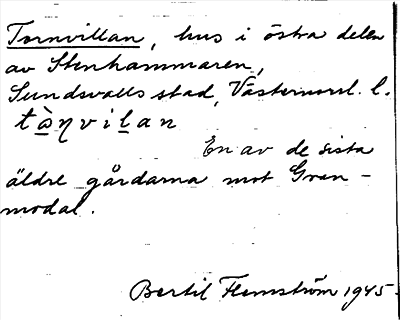 Tornvillan, hus i östra delen
av Stenhammaren,
Sundsvalls stad, Västernorrl. l.
tànvilan
En av de sista
äldre gårdarna mot Gran-
modal.
Bertil Flemström 1945.